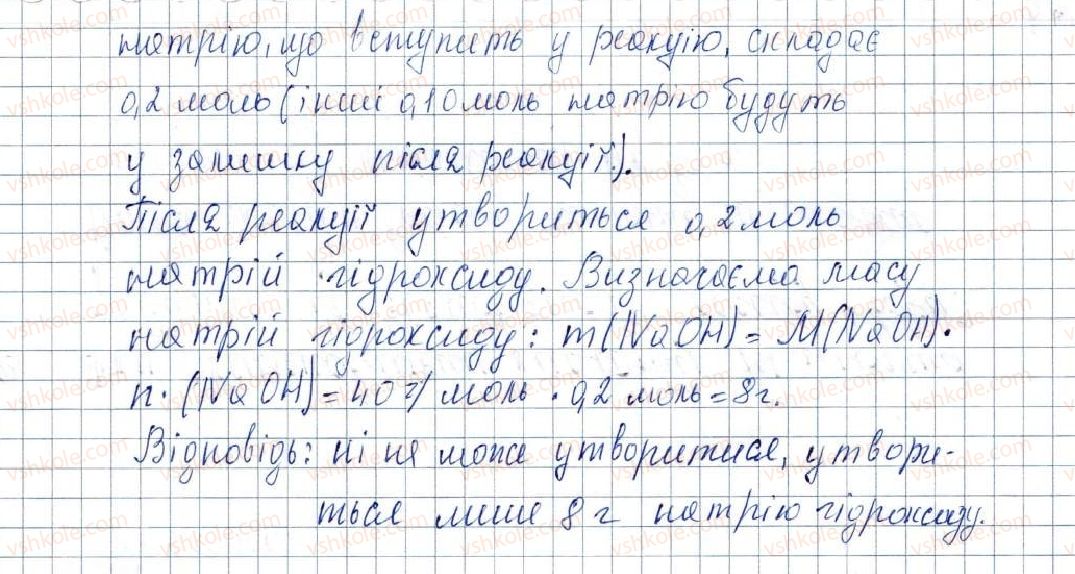 натрію, що вступить у реакцію, складає
0,2 моль (інші 0,10 моль натрію будуть
у залишку після реакції).
Після реакції утвориться 0,2 моль
натрій гідроксиду. Визначаємо масу
натрій гідроксиду: m(NaOH) = M(NaOH)·
n·(NaOH) = 40 г/моль · 0,2 моль = 8г.
Відповідь: ні не може утворитися, утвори-
ться лише 8 г натрію гідроксиду.